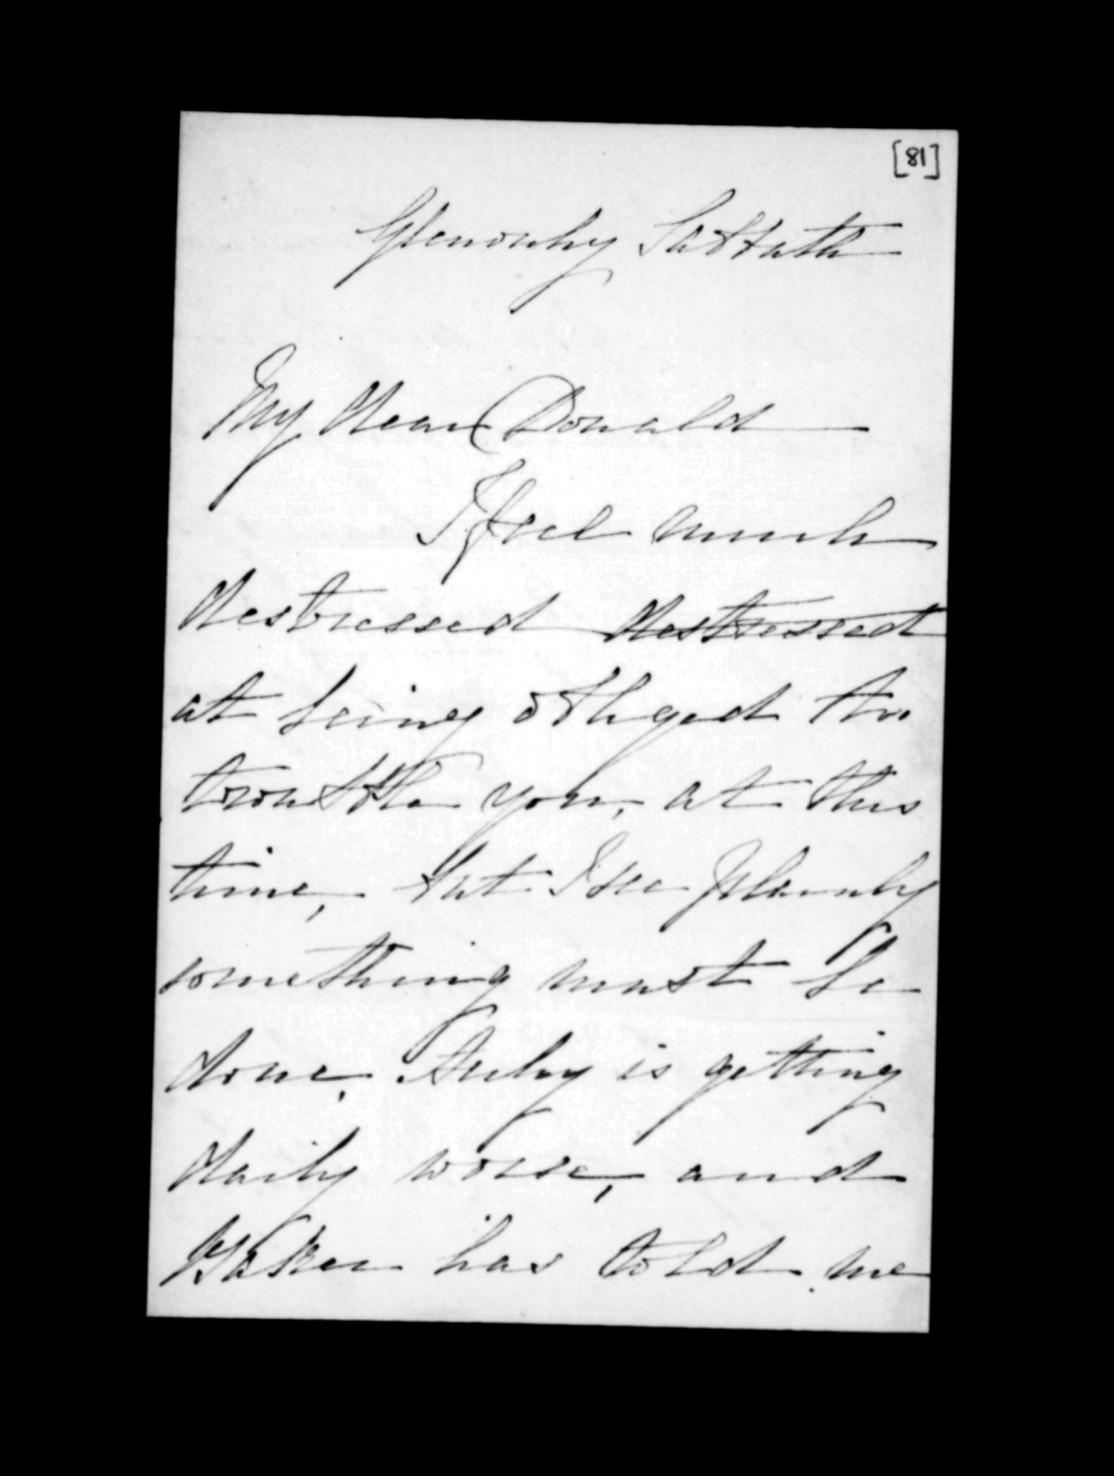 [81]
Glenorchy Sabbath
My dear Donald
I feel much
destressed ~~destressed~~
at being obliged to
trouble you, at this
time, but I see plainly
something must be
done. Archy is getting
daily worse, and
Baker has told me